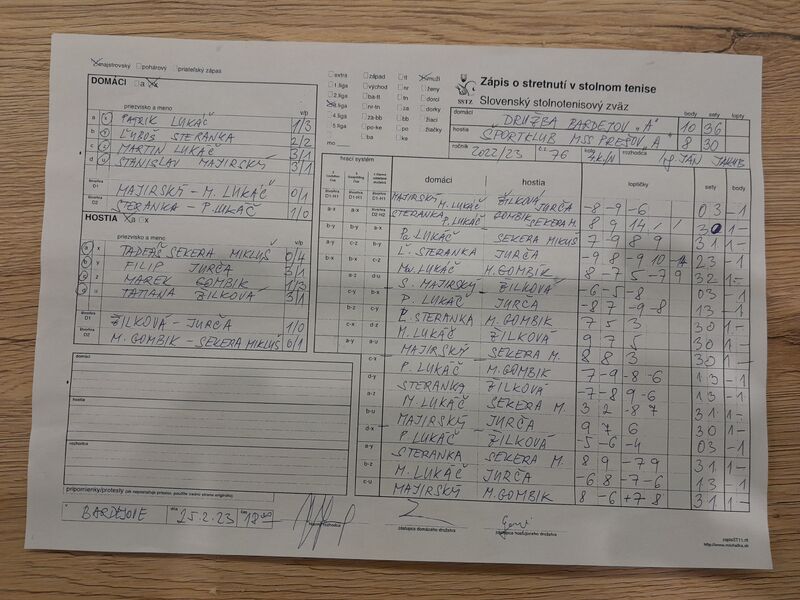 majstrovský pohárový priateľský zápas
DOMÁCI a x
priezvisko a meno v/p
a PATRIK LUKÁČ 1/3
b ĽUBOŠ STERANKA 2/2
c MARTIN LUKÁČ 3/1
d STANISLAV MAJIRSKÝ 3/1
štvorhra D1 MAJIRSKÝ - M. LUKÁČ 0/1
štvorhra D2 STERANKA - P. LUKÁČ 1/0
HOSTIA a x
priezvisko a meno v/p
x TADEÁŠ SEKERA MIKLUŠ 0/4
y FILIP JURČA 3/1
z MAREK GOMBÍK 1/3
u TATIANA ŽILKOVÁ 3/1
štvorhra D1 ŽILKOVÁ - JURČA 1/0
štvorhra D2 M. GOMBIK - SEKERA MIKLUŠ 0/1
domáci
hostia
rozhodca
pripomienky/protesty (ak nepostačuje priestor, použite zadnú stranu originálu)
BARDEJOVE dňa 25.2.23
vedúci rozhodca
zástupca domáceho družstva
zástupca hosťujúceho družstva
extra západ tt muži
1.liga východ nr ženy
2.liga ba-tt tn dorci
3.liga nr-tn za dorky
4.liga za-bb bb žiaci
5.liga po-ke ke žiačky
po-ba po
mo
Zápis o stretnutí v stolnom tenise
SSTZ Slovenský stolnotenisový zväz
body sety lopty
domáci DRUŽBA BARDEJOV "A" 10 36
hostia ŠPORTKLUB MŠŠ PREŠOV "A" 8 30
ročník 2022/23 č.s. 76 kolo rozhodca Ing. JÁN JAKUB
hrací systém
domáci hostia loptičky sety body
MAJIRSKÝ M. LUKÁČ ŽILKOVÁ JURČA -8 -9 -6 0 3 -1
STERANKA P. LUKÁČ GOMBIK SEKERA M. 8 9 14 / / 3 0 1-
P. LUKÁČ SEKERA MIKUŠ 7 -9 8 9 31 1-
Ľ. STERANKA JURČA -9 8 -9 10 -14 23 -1
M. LUKÁČ M. GOMBIK 8 -7 5 -7 9 32 1-
S. MAJIRSKÝ ŽILKOVÁ -6 -5 -8 03 -1
P. LUKÁČ JURČA -8 7 -9 -8 13 -1
Ľ. STERANKA M. GOMBIK 7 5 3 30 1-
M. LUKÁČ ŽILKOVÁ 9 7 5 30 1-
MAJIRSKÝ SEKERA M. 8 8 3 30 1-
P. LUKÁČ M. GOMBIK 7 -9 -8 -6 13 -1
STERANKA ŽILKOVÁ -7 -8 9 -6 13 -1
M. LUKÁČ SEKERA M. 3 2 -8 7 31 1-
MAJIRSKÝ JURČA 9 7 6 30 1-
P. LUKÁČ ŽILKOVÁ -5 -6 -4 03 -1
STERANKA SEKERA M. 8 9 -7 9 31 1-
M. LUKÁČ JURČA -6 8 -7 -6 13 -1
MAJIRSKÝ M. GOMBIK 8 -6 +7 8 31 1-
zapisST11.rtf
http://www.michalka.sk